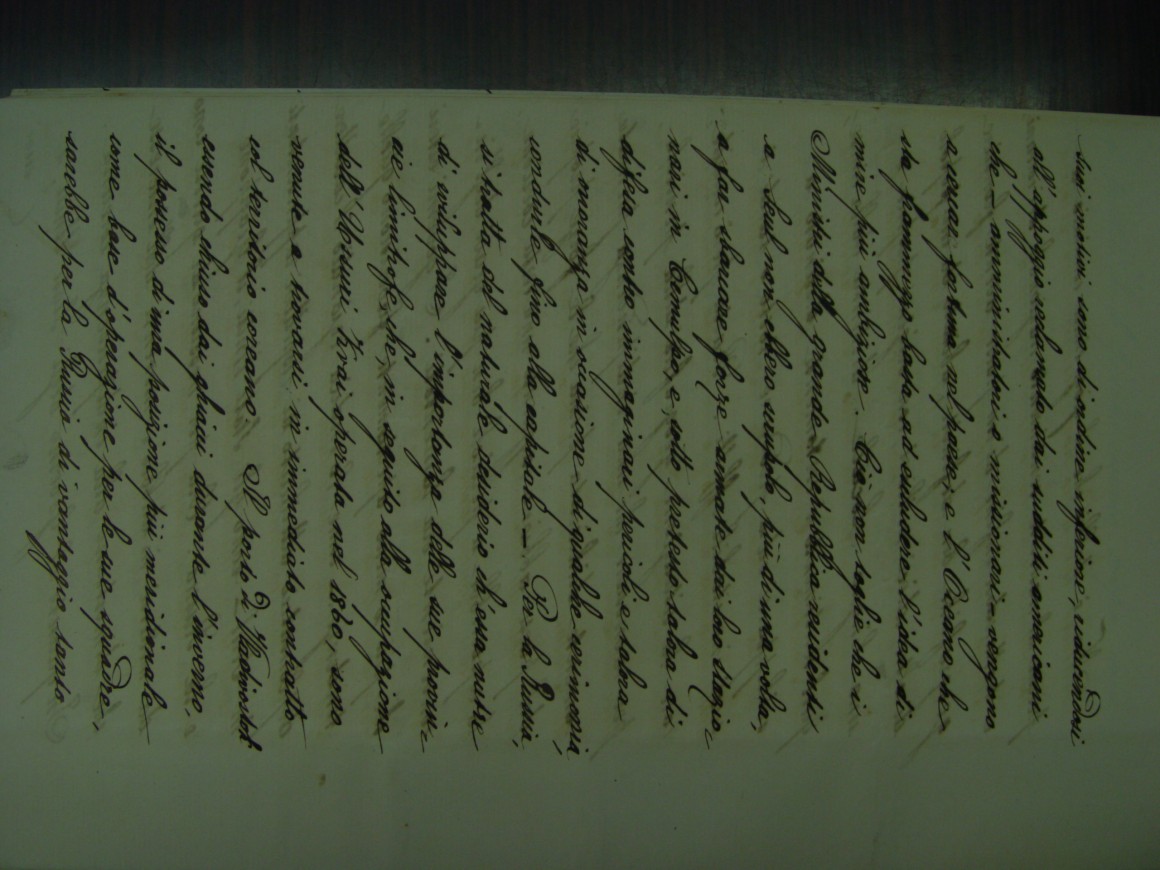 suoi motivi sono di indire inferiore, riducendosi
all'appoggio reclamato dai sudditi americani
che – amministratori o missionari – vengono
a cercar fortuna nel paese; e l'Oceano che
sta frammezzo basta ad escludere l'idea di
mire più ambiziose. Ciò non toglie che i
Ministri della grande Repubblica residenti
a Seul non ebbero scrupolo, più di una volta,
a far sbarcare forze armate dai loro stazio-
nari in Cemulpo, e, sotto pretesto talora di
difesa contro immaginari pericoli e talora
di mancanza in occasione di qualche cerimonia,
condurle fino alla capitale. – Per la Russia,
si tratta del naturale desiderio ch'essa nutre
di sviluppare l'importanza delle sue provin-
cie limitrofe che, in seguito alla occupazione
dell'Ussuri Krai operata nel 1860, sono
venute a trovarsi in immediato contatto
col territorio coreano. Il porto di Wladivostok
essendo chiuso dai ghiacci durante l'inverno,
il possesso di una posizione più meridionale
come base d'operazione per le sue squadre,
sarebbe per la Russia di vantaggio tanto